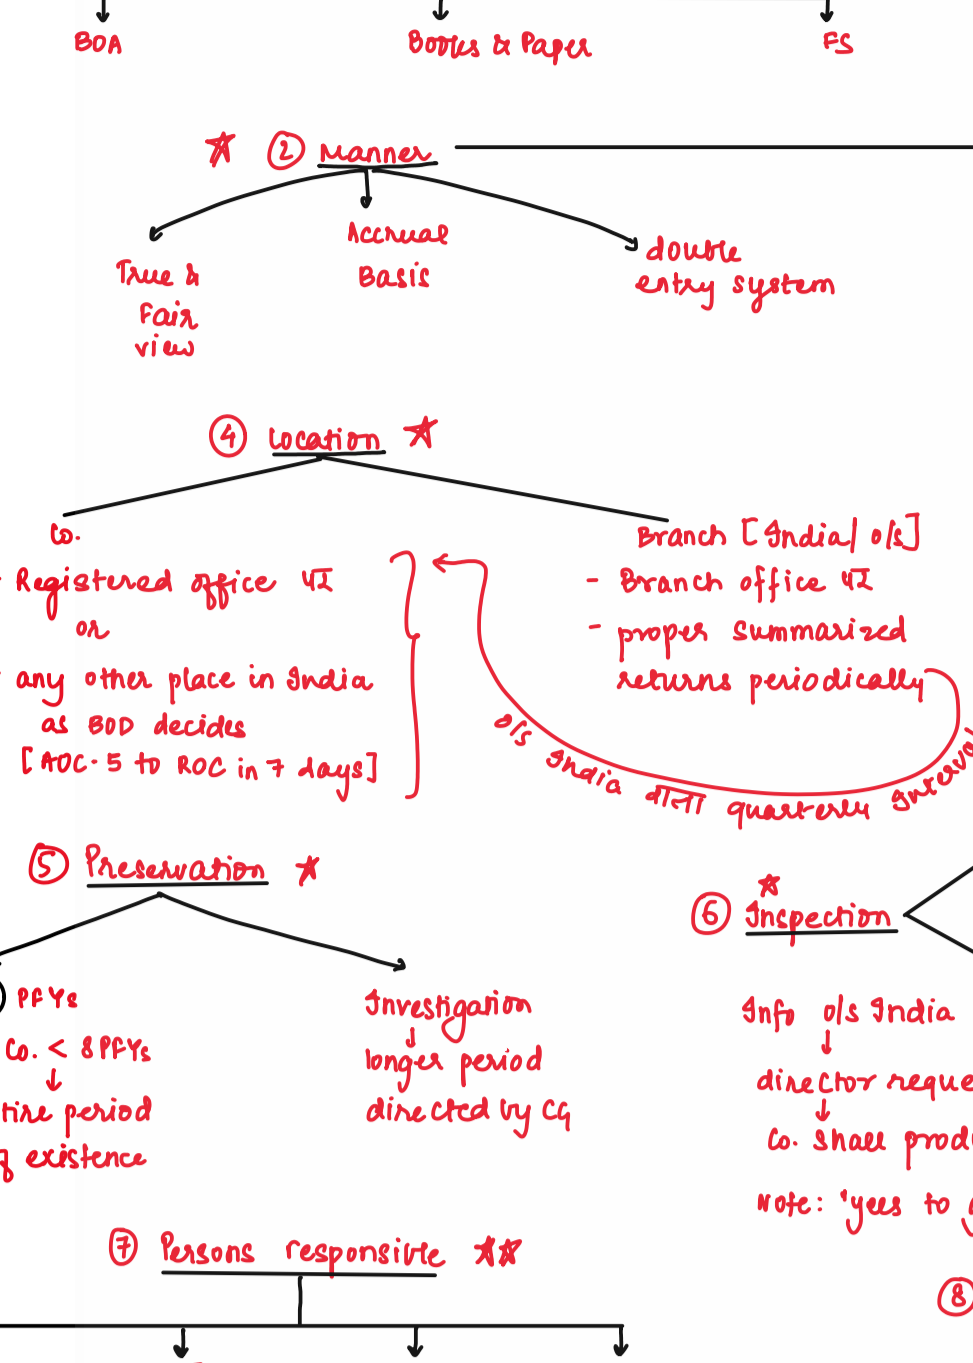 BOA
Books & Paper
FS
② Manner
True &
Fair
view
Accrual
Basis
double
entry system
④ Location
Co.
Registered office પર
or
any other place in India
as BOD decides
[AOC-5 to ROC in 7 days]
Branch [India/ o/s]
- Branch office પર
- proper summarized
returns periodically
o/s India वाला quarterly
⑤ Preservation
PFYs
Co. < 8 PFYs
period
existence
Investigation
longer period
directed by CG
⑥ Inspection
Info o/s India
director
Co. shall
Note: 'yees to
⑦ Persons responsible
⑧